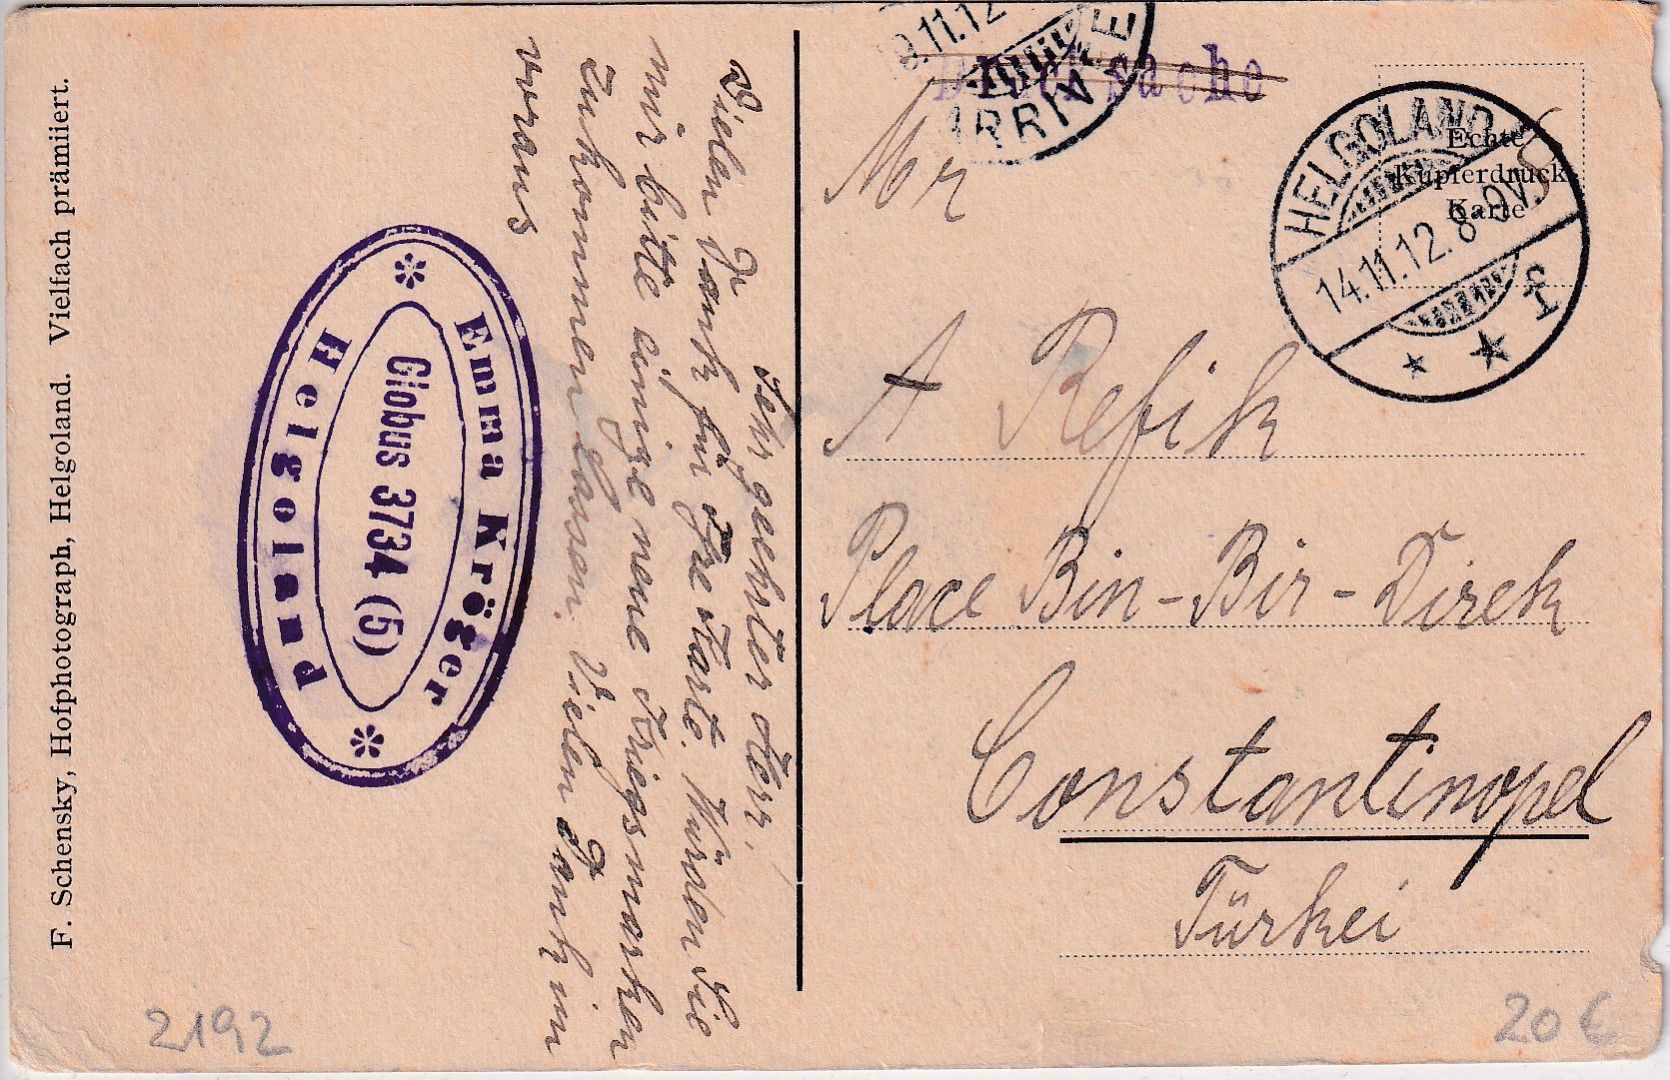 F. Schensky, Hofphotograph, Helgoland. Vielfach prämiiert.
Sehr geehrter Herr!
Vielen Dank für Ihre Karte. Würden Sie
mir bitte einige neue Kriegsmarken
zukommen lassen. Vielen Dank im
voraus
Emma Kröger
Globus 3734 (5)
Helgoland
9.11.12
ARRIVEE
Drucksache
HELGOLAND
14.11.12. 8-9V.
Echte
Kupferdruck
Karte
Mr
A Refik
Place Bin-Bir-Direk
Constantinopel
Türkei
2192
20 €